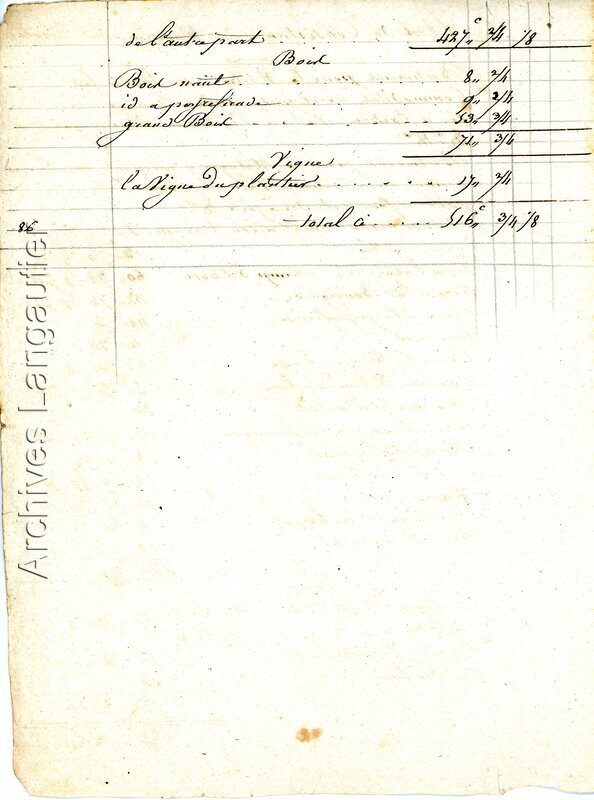 de l'autre part . . . . . . . 427 c 2/4 1/8
Bois
Bois naut . . . . . . . 8,, 2/4
id a peyreficade . . . . . 9,, 2/4
grand Bois . . . . . . . 53,, 3/4
71,, 3/4
Vigne
la Vigne du plantier . . . . . 17,, 2/4
86 total ci . . . . . 516 c 3/4 1/8
Archives Langautier